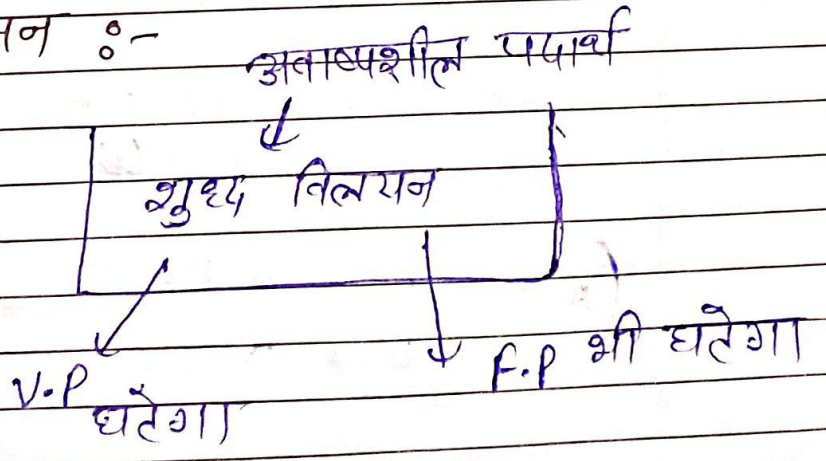 नन :-
अवाष्पशील पदार्थ
शुध्द विलयन
V.P घटेगा
F.P भी घटेगा